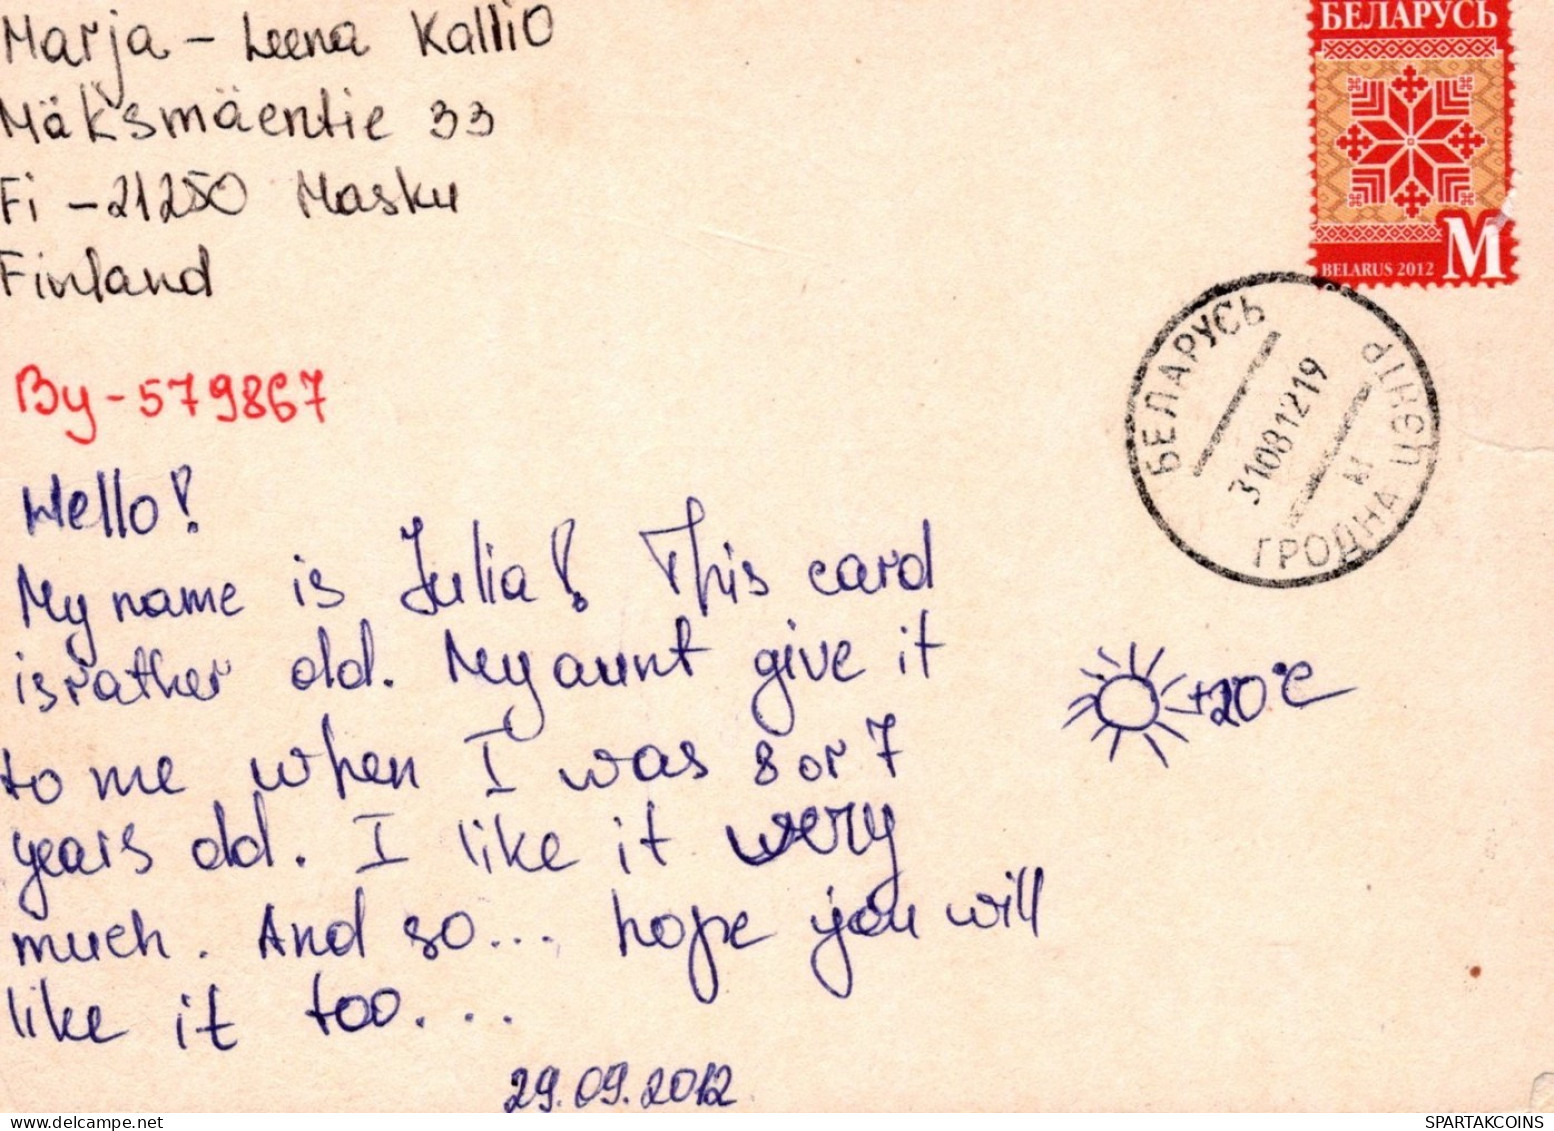 Marja - Leena Kallio
Mäksmäentie 33
Fi - 21250 Masku
Finland
By - 579867
Hello!
My name is Julia! This card
is rather old. My aunt give it
to me when I was 8 or 7
years old. I like it wery
much. And so... hope you will
like it too...
29.09.2012
+20°C
БЕЛАРУСЬ
M
BELARUS 2012
БЕЛАРУСЬ
31081219
ГРОДНА ЦЕНТР
SPARTAKCOINS